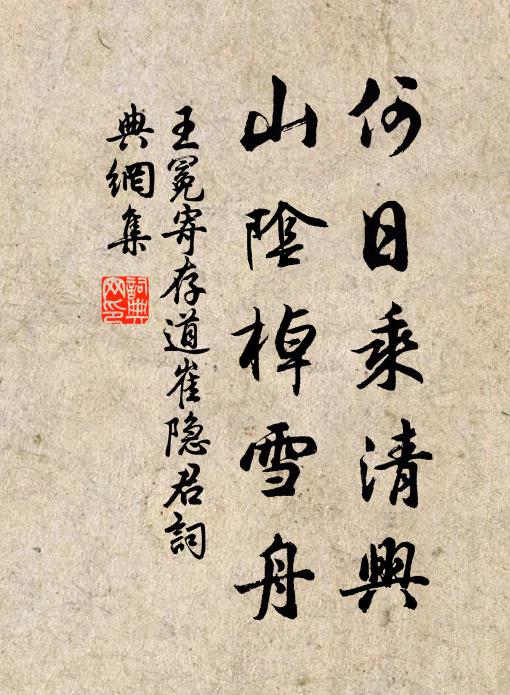 何日乘清興
山陰棹雪舟
王冕寄存道崔隐君詞
典網集
詞典
网印